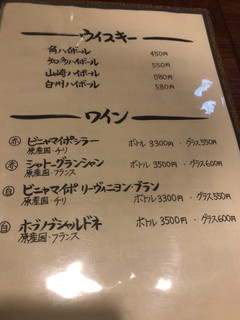 ウイスキー
角ハイボール 450円
知多ハイボール 550円
山崎ハイボール 580円
白州ハイボール 580円
ワイン
赤 ビニャマイポシラー ボトル 3300円・グラス550円
原産国・チリ
赤 シャトーグランジャン ボトル 3500円・グラス600円
原産国・フランス
白 ビニャマイポ リーヴニヨン・ブラン ボトル 3300円・グラス550円
原産国・チリ
白 ホブノブシャルドネ ボトル 3500円・グラス600円
原産国・フランス